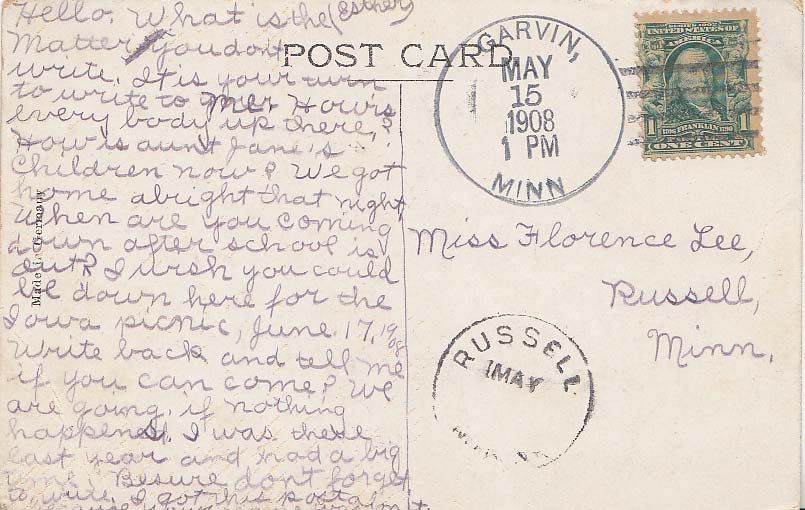 Hello. What is the (Esther)
Matter you dont
write. It is your turn
to write to me. How is
every body up there,?
How is aunt Jane's
Children now? We got
home alright that night,
When are you coming
down after school is
out? I wish you could
be down here for the
Iowa picnic, June 17, 1908
Write back and tell me
if you can come? We
are going, if nothing
happened, I was there
last year and had a big
time. Besure dont forget
to write. I got this postal
POST CARD
Made in Germany
GARVIN,
MAY
15
1908
1 PM
MINN
SERIES 1902
UNITED STATES OF
AMERICA
1706 FRANKLIN 1790
1 1
ONE CENT
Miss Florence Lee,
Russell,
Minn.
RUSSELL
1MAY